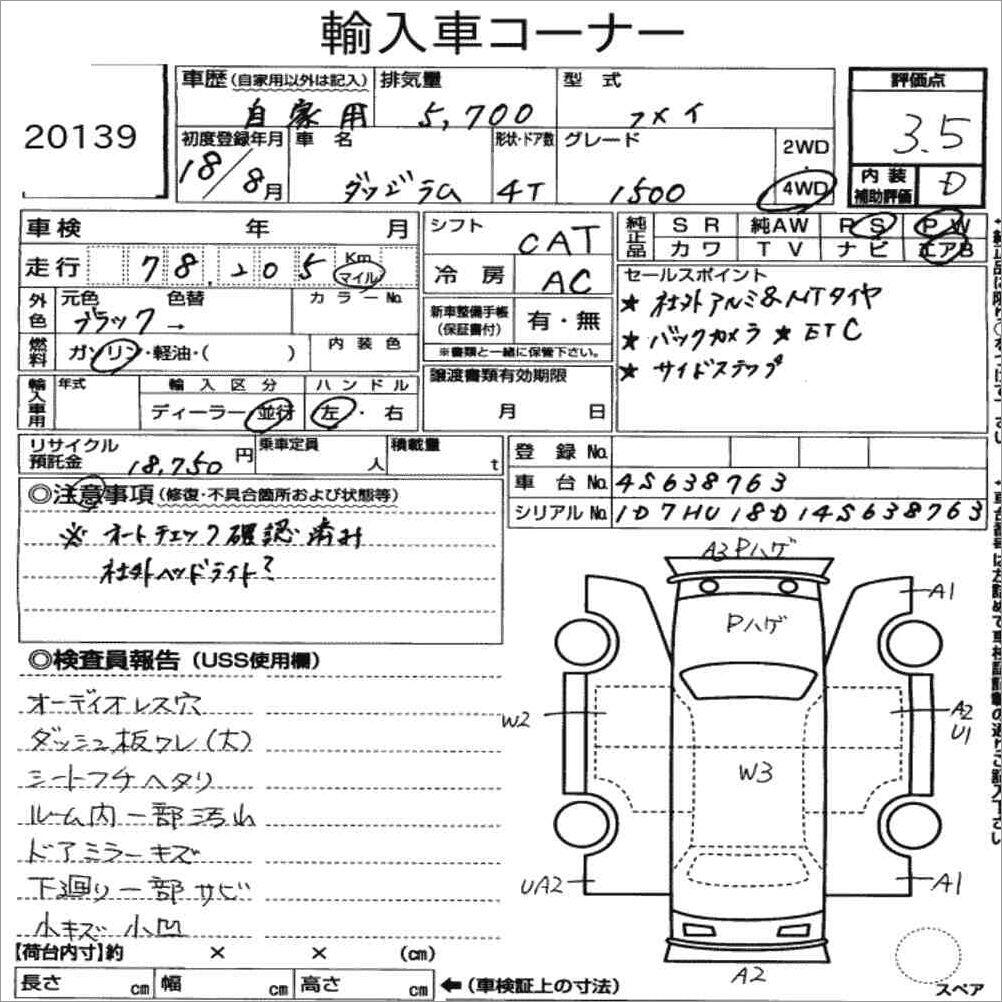 輸入車コーナー
20139
車歴(自家用以外は記入) 排気量 型式 評価点
自家用 5,700 フメイ 3.5
初度登録年月 車名 形状・ドア数 グレード 2WD
18/8月 ダッジラム 4T 1500 4WD
内装補助評価 D
車検 年 月 シフト CAT
純正品 SR 純AW PS PW
カワ TV ナビ エアB
走行 78,205 Km マイル 冷房 AC
セールスポイント
★ 社外アルミ&MTタイヤ
★ バックカメラ ★ ETC
★ サイドステップ
外色 元色 色替 カラーNo.
ブラック →
新車整備手帳(保証書付) 有・無
※書類と一緒に保管下さい。
燃料 ガソリン・軽油・( ) 内装色
輸入車用 年式 輸入区分 ハンドル
ディーラー 並行 左・右
譲渡書類有効期限
月 日
リサイクル預託金 18,750円 乗車定員 人 積載量 t
登録No.
車台No. 4S638763
シリアルNo. 1D7HU18D14S638763
◎注意事項(修復・不具合箇所および状態等)
※ オートチェック確認済み
社外ヘッドライト?
◎検査員報告(USS使用欄)
オーディオレス穴
ダッシュ板ワレ(大)
シートフチヘタリ
ルーム内一部汚れ
ドアミラーキズ
下回り一部サビ
小キズ小凹
A3 Pハゲ
A1
Pハゲ
W2
A2
U1
W3
UA2
A1
A2
スペア
【荷台内寸】約 × × (cm)
長さ cm 幅 cm 高さ cm ←(車検証上の寸法)